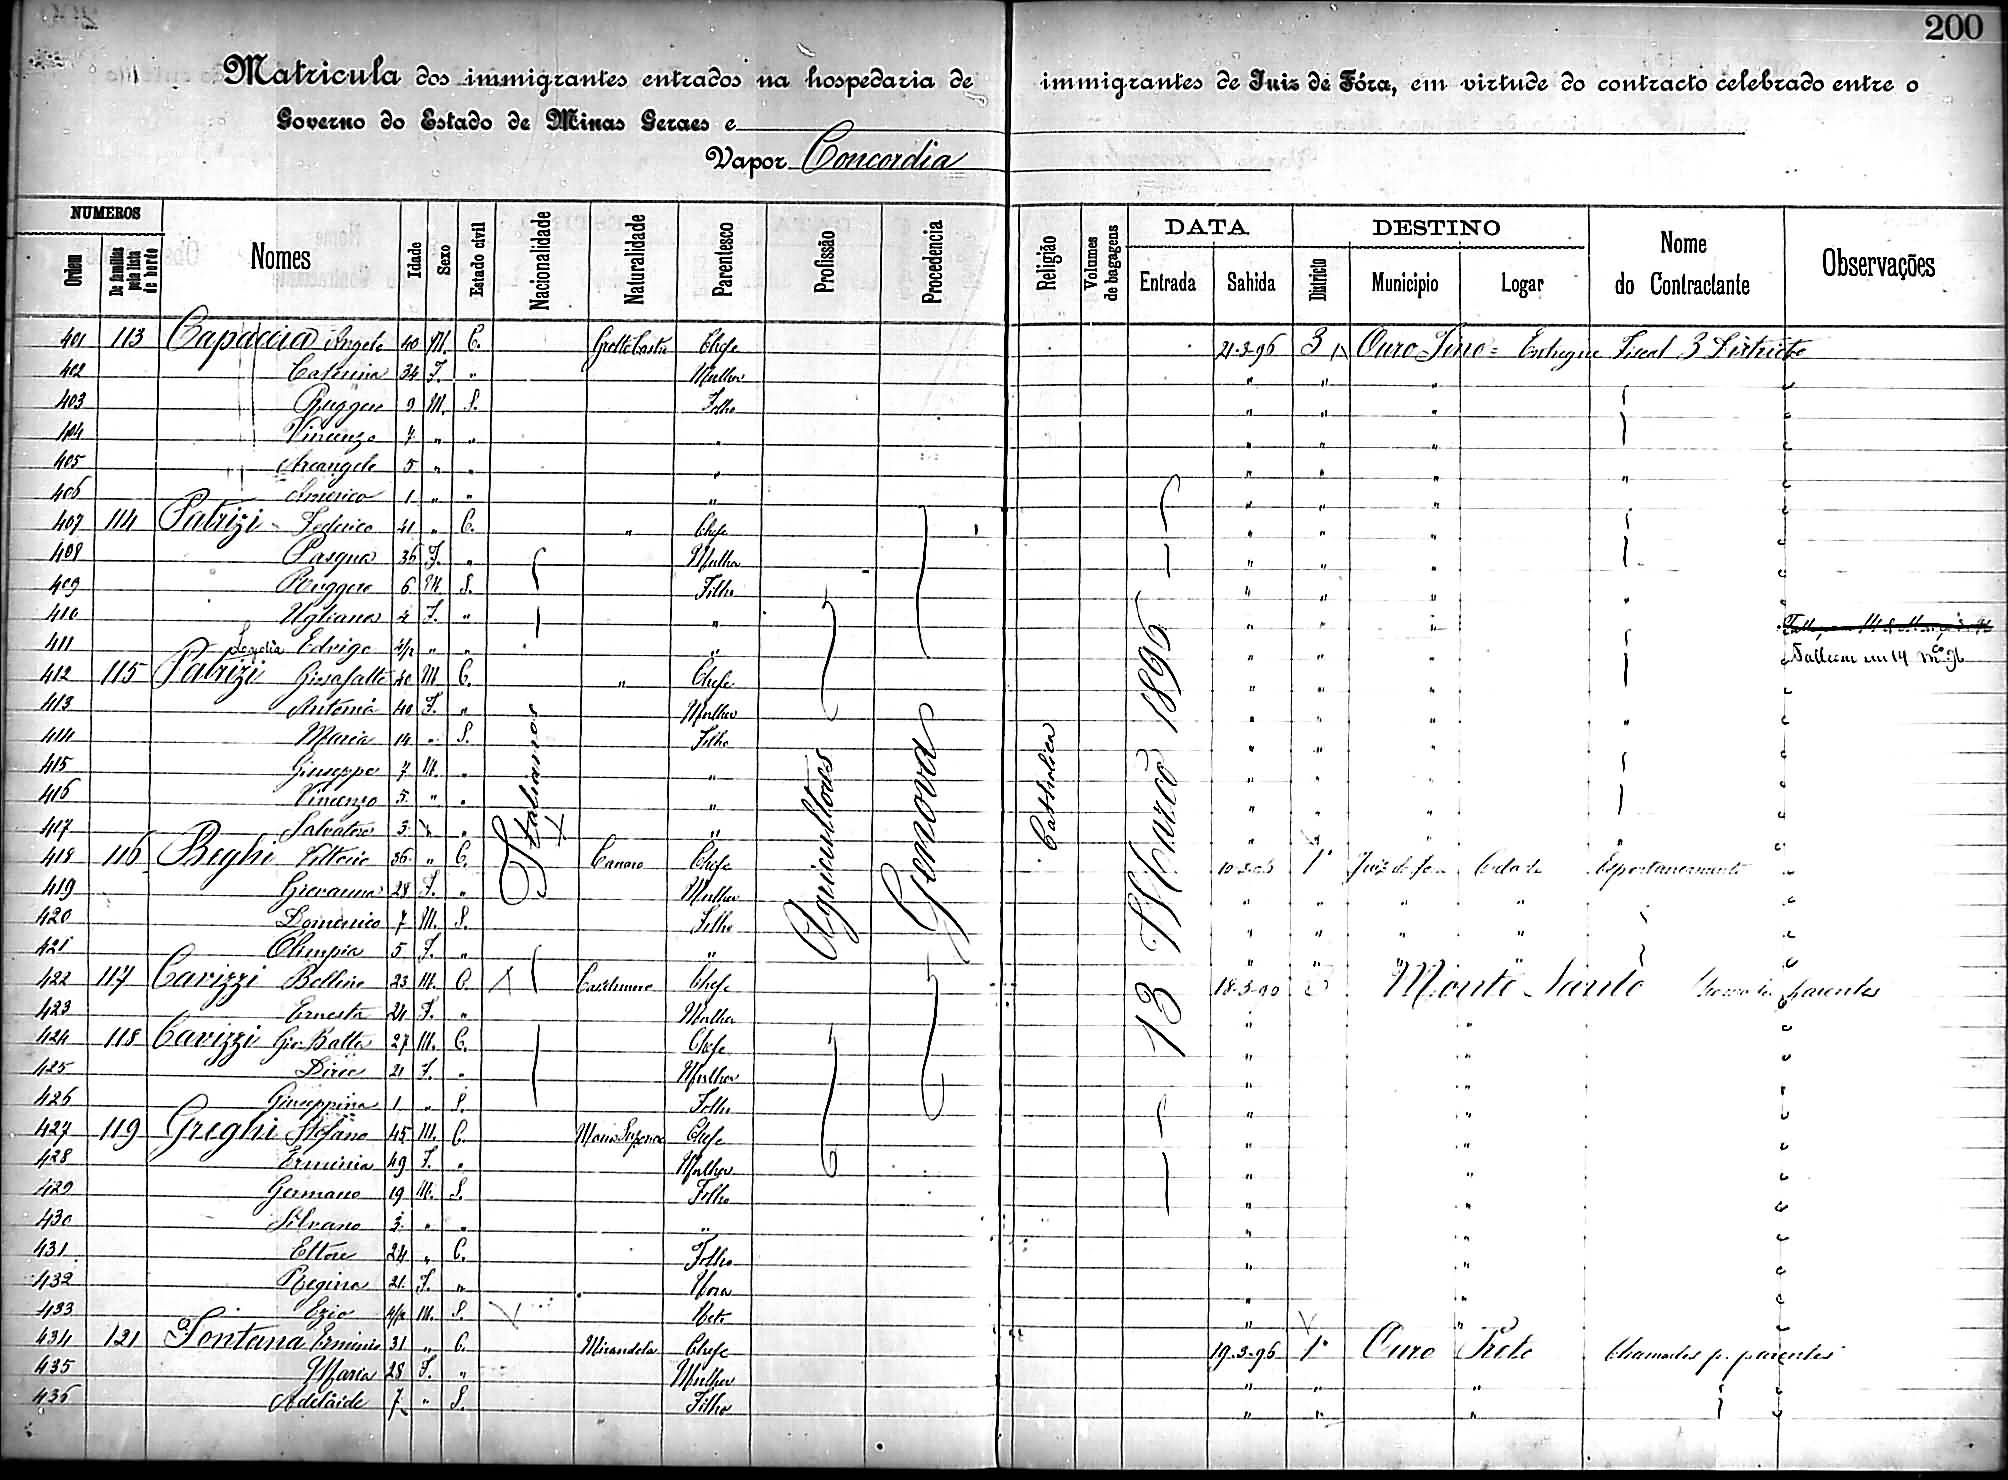 200
Matricula dos immigrantes entrados na hospedaria de immigrantes de Juiz de Fóra, em virtude do contracto celebrado entre o
Governo do Estado de Minas Geraes e
Vapor Concordia
NUMEROS DATA DESTINO
Ordem De familia pela lista de bordo Nomes Idade Sexo Estado civil Nacionalidade Naturalidade Parentesco Profissão Procedencia Religião Volumes de bagagens Entrada Sahida Districto Municipio Logar Nome do Contractante Observações
Italianos Agricultores Genova Catholica 13 Março 1896
401 113 Capaccia Angelo 40 M. C. Chefe 21-3-96 3 Ouro Fino = Entregue Fiscal 3 Districto
402 Caterina 34 F. " Mulher " " "
403 Ruggero 9 M. S. Filho " " "
404 Vincenzo 7 " " " " " "
405 Arcangelo 5 " " " " " "
406 Americo 1 " " " " " " "
407 114 Patrizi Federico 41 " C. " Chefe " " "
408 Pasqua 36 F. " Mulher " " "
409 Ruggero 6 M. S. Filho " " "
410 Ugliana 4 F. " " " " " "
411 Edvige " " " " " " Falleceu em 14 Mço 96
412 115 Patrizi 40 M C. " Chefe " " "
413 Antonia 40 F. " Mulher " " "
414 Maria 14 " S. Filho " " " "
415 Giuseppe 7 M. " " " " "
416 Vincenzo 5 " " " " " "
417 Salvatore 3 " " " " " " "
418 116 Beghi Vittorio 36 " C. Canaro Chefe 1º Juiz de Fora Cidade Espontaneamente
419 Giovanna 28 F. " Mulher " " " "
420 Domenico 7 M. S. Filho " " " "
421 Olimpia 5 F. " " " " " "
422 117 Cavizzi Bellino 23 M. C. Chefe Monte Santo parentes
423 Ernesta 24 F. " Mulher " "
424 118 Cavizzi Gio. Batta 27 M. C. Chefe " "
425 Dirce 21 F. " Mulher " "
426 Giuseppina 1 " S. Filho " "
427 119 Greghi Stefano 45 M. C. Chefe " "
428 Erminia 49 F. " Mulher " "
429 Germano 19 M. S. Filho " "
430 Silvano 3 " " " " "
431 Ettore 24 " C. Filho " "
432 Regina 21 F. " Nora " "
433 Ezio M. S. Neto " "
434 121 Fontana Erminio 31 " C. Mirandola Chefe 19-3-96 1º Ouro Preto Chamados p. parentes
435 Maria 28 F. " Mulher " " "
436 Adelaide 7 " S. Filho " " "